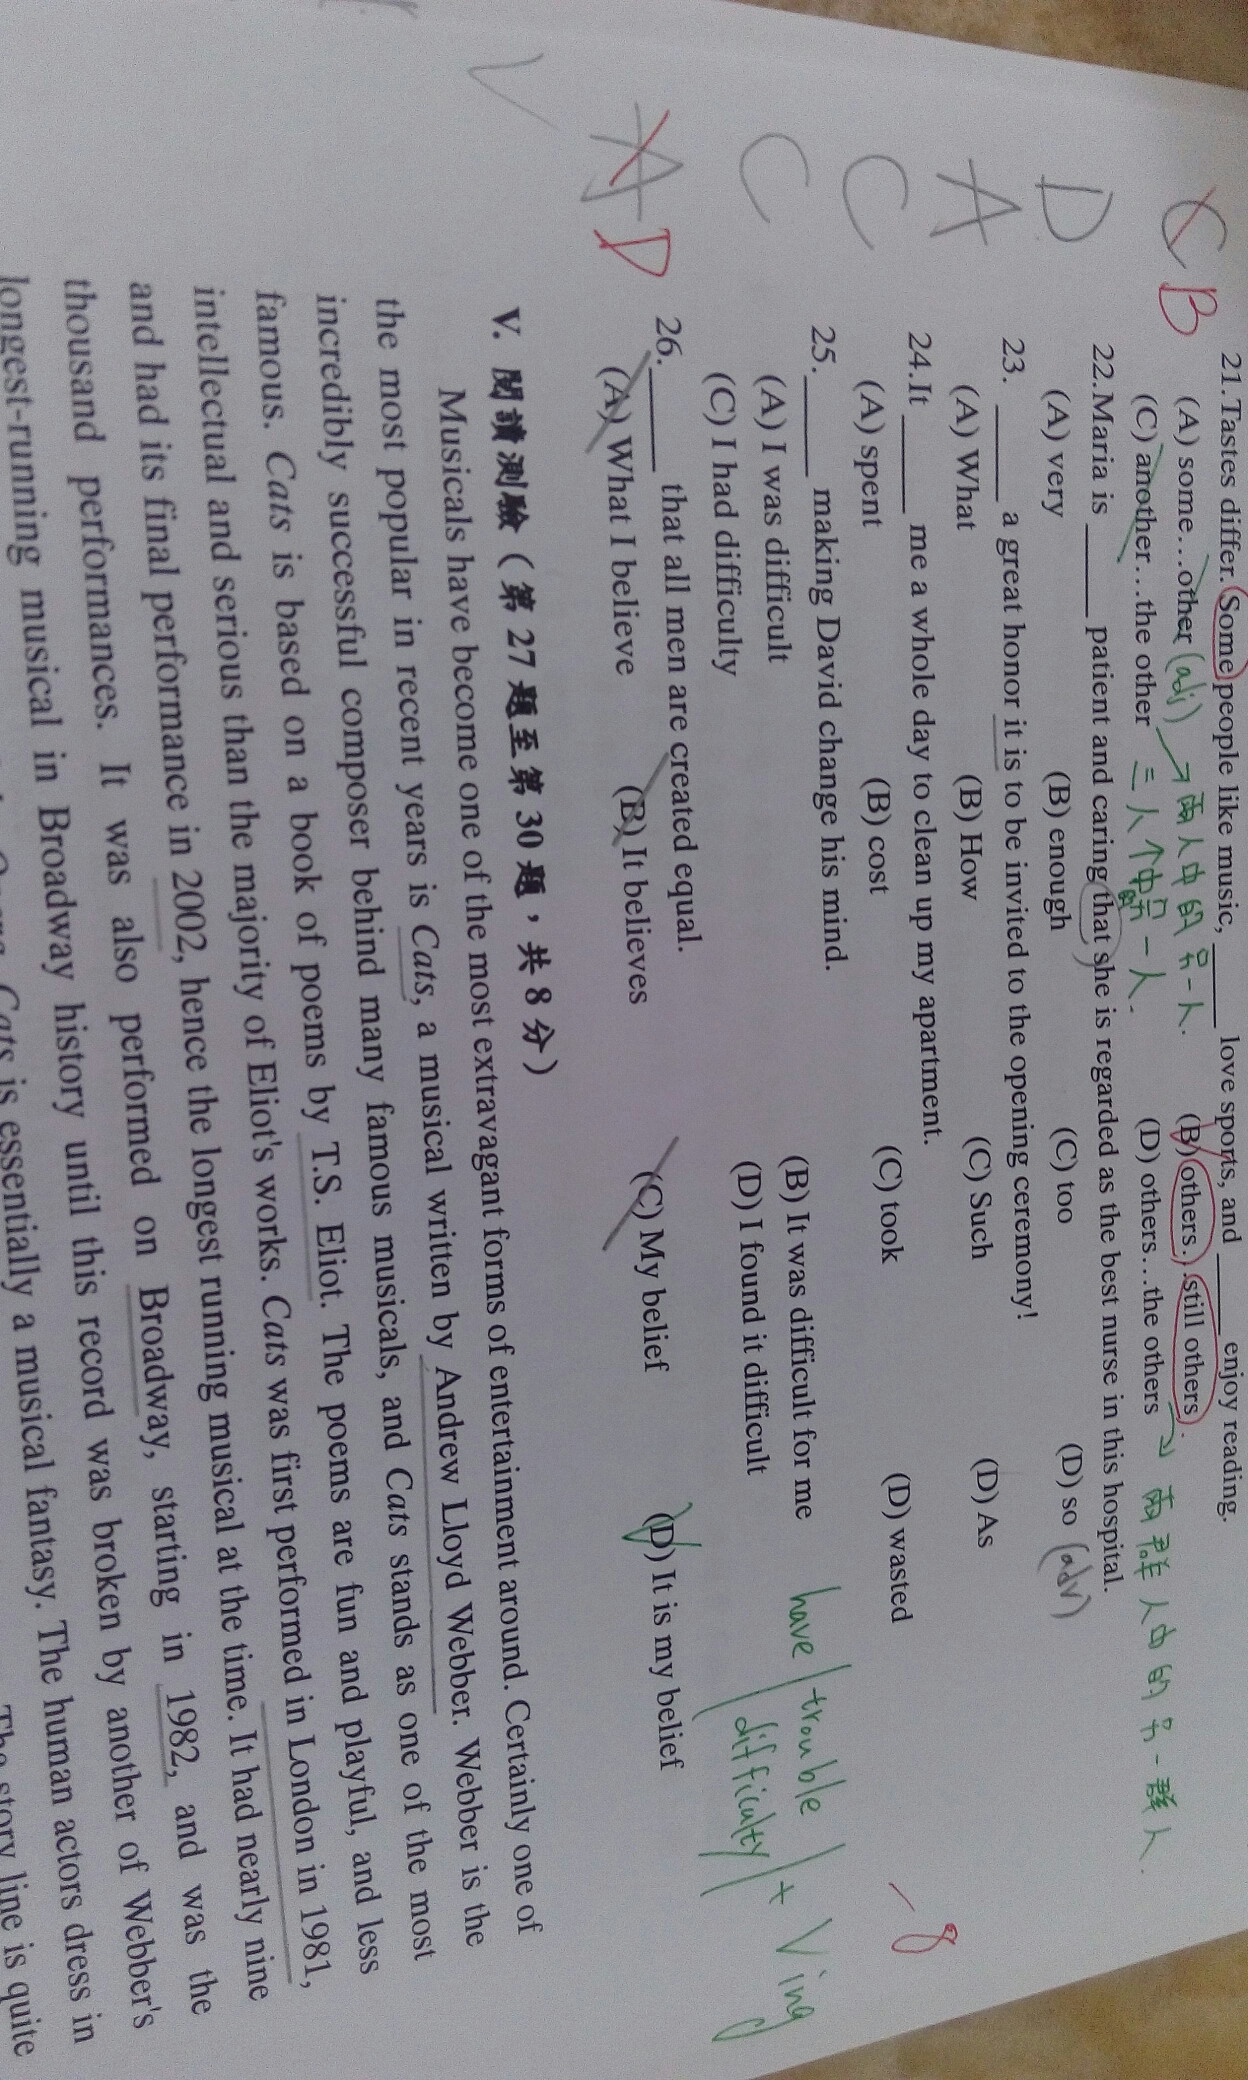 C B 21.Tastes differ. Some people like music, ______ love sports, and ______ enjoy reading.
(A) some…other (adj) → 兩人中的另一人. (B) others…still others.
(C) another…the other 三人个中 另一人. (D) others…the others → 兩群人中的另一群人.
D 22.Maria is ______ patient and caring that she is regarded as the best nurse in this hospital.
(A) very (B) enough (C) too (D) so (adv)
A 23. ______ a great honor it is to be invited to the opening ceremony!
(A) What (B) How (C) Such (D) As
C 24.It ______ me a whole day to clean up my apartment.
(A) spent (B) cost (C) took (D) wasted
-8
C 25.______ making David change his mind.
(A) I was difficult (B) It was difficult for me
(C) I had difficulty (D) I found it difficult
have trouble difficulty + Ving
A D 26.______ that all men are created equal.
(A) What I believe (B) It believes (C) My belief (D) It is my belief
V. 閱讀測驗（第 27 題至第 30 題，共 8 分）
Musicals have become one of the most extravagant forms of entertainment around. Certainly one of
the most popular in recent years is Cats, a musical written by Andrew Lloyd Webber. Webber is the
incredibly successful composer behind many famous musicals, and Cats stands as one of the most
famous. Cats is based on a book of poems by T.S. Eliot. The poems are fun and playful, and less
intellectual and serious than the majority of Eliot's works. Cats was first performed in London in 1981,
and had its final performance in 2002, hence the longest running musical at the time. It had nearly nine
thousand performances. It was also performed on Broadway, starting in 1982, and was the
longest-running musical in Broadway history until this record was broken by another of Webber's
Cats is essentially a musical fantasy. The human actors dress in
The story line is quite